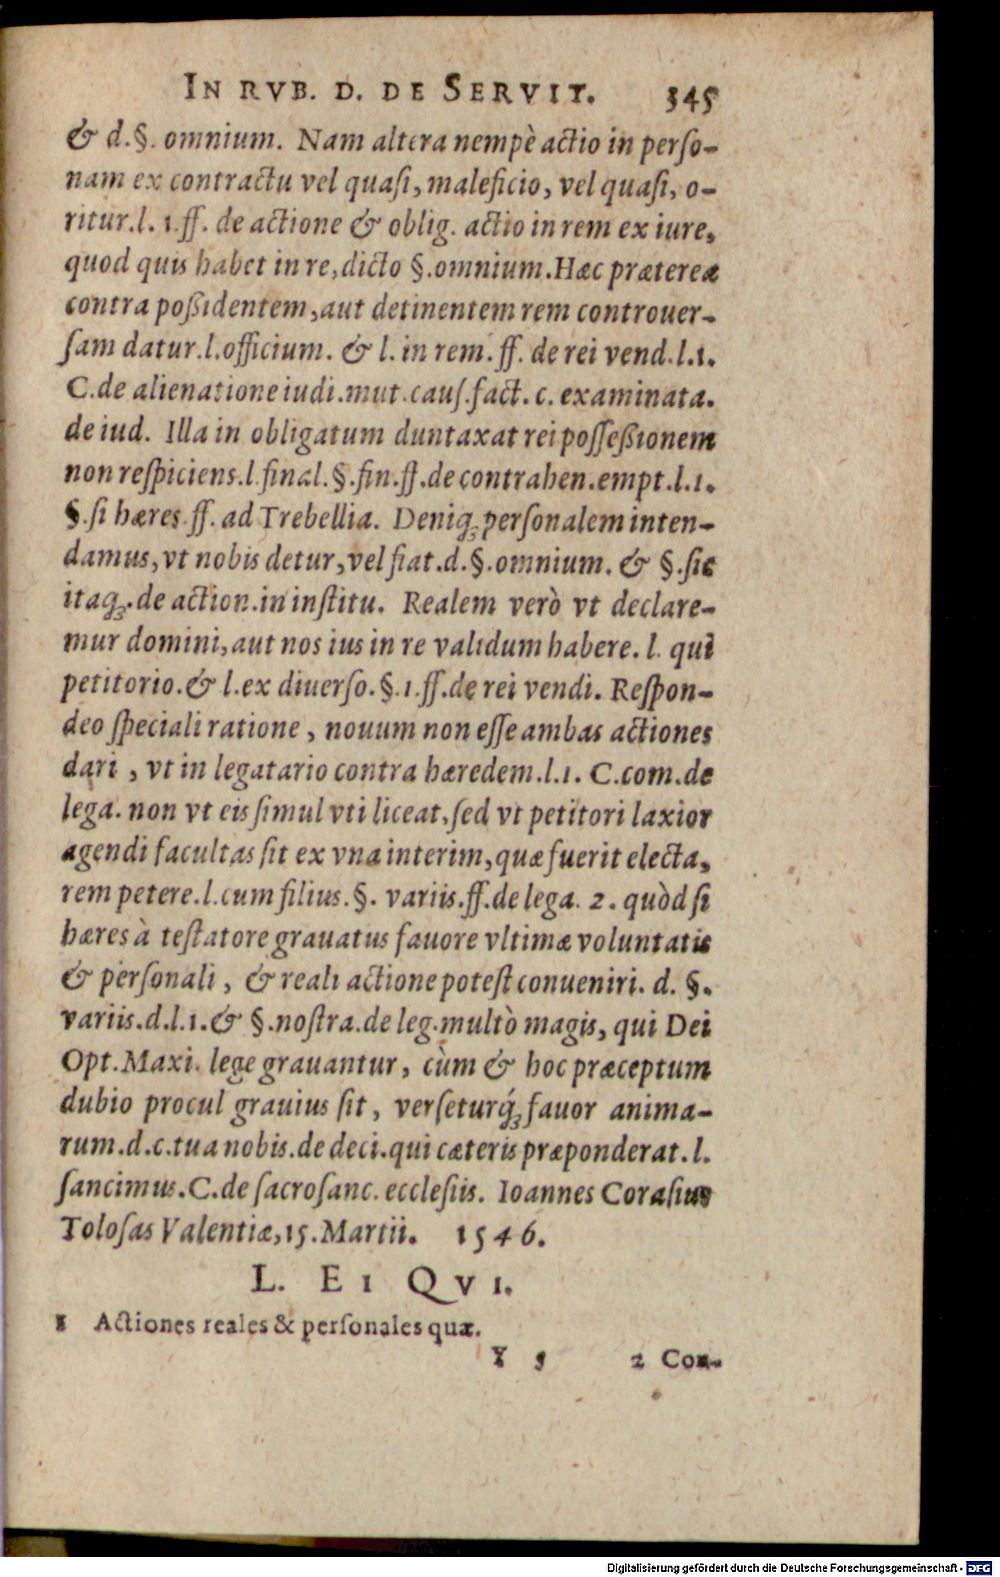 IN RVB. D. DE SERVIT. 345
& d.§. omnium. Nam altera nempè actio in perſo-
nam ex contractu vel quaſi, maleficio, vel quaſi, o-
ritur.l. 1.ff. de actione & oblig. actio in rem ex iure,
quod quis habet in re, dicto §.omnium.Hæc prætereæ
contra poßidentem, aut detinentem rem controuer-
ſam datur.l.officium. & l. in rem. ff. de rei vend.l.1.
C.de alienatione iudi.mut.cauſ.fact. c. examinata.
de iud. Illa in obligatum duntaxat rei poſſeßionem
non reſpiciens.l.final.§.fin.ff.de contrahen.empt.l.1.
§.ſi hæres ff. ad Trebellia. Deniq; perſonalem inten-
damus, vt nobis detur, vel fiat.d.§.omnium. & §.ſic
itaq;.de action.in inſtitu. Realem verò vt declare-
mur domini, aut nos ius in re validum habere. l. qui
petitorio.& l.ex diuerſo.§.1.ff.de rei vendi. Reſpon-
deo ſpeciali ratione, nouum non eſſe ambas actiones
dari, vt in legatario contra hæredem.l.1. C.com.de
lega. non vt eis ſimul vti liceat, ſed vt petitori laxior
agendi facultas ſit ex vna interim, quæ fuerit electa,
rem petere.l.cum filius.§. variis.ff.de lega. 2. quòd ſi
hæres à teſtatore grauatus fauore vltimæ voluntatis
& perſonali, & reali actione poteſt conueniri. d. §.
variis.d.l.1.& §.noſtra.de leg.multò magis, qui Dei
Opt.Maxi. lege grauantur, cùm & hoc præceptum
dubio procul grauius ſit, verſeturq́; fauor anima-
rum.d.c.tua nobis.de deci.qui cæteris præponderat.l.
ſancimus.C.de ſacroſanc. eccleſiis. Ioannes Coraſius
Toloſas Valentiæ, 15.Martii. 1546.
L. EI QVI.
1 Actiones reales & perſonales quæ.
Y 5 2 Con-
Digitalisierung gefördert durch die Deutsche Forschungsgemeinschaft - DFG